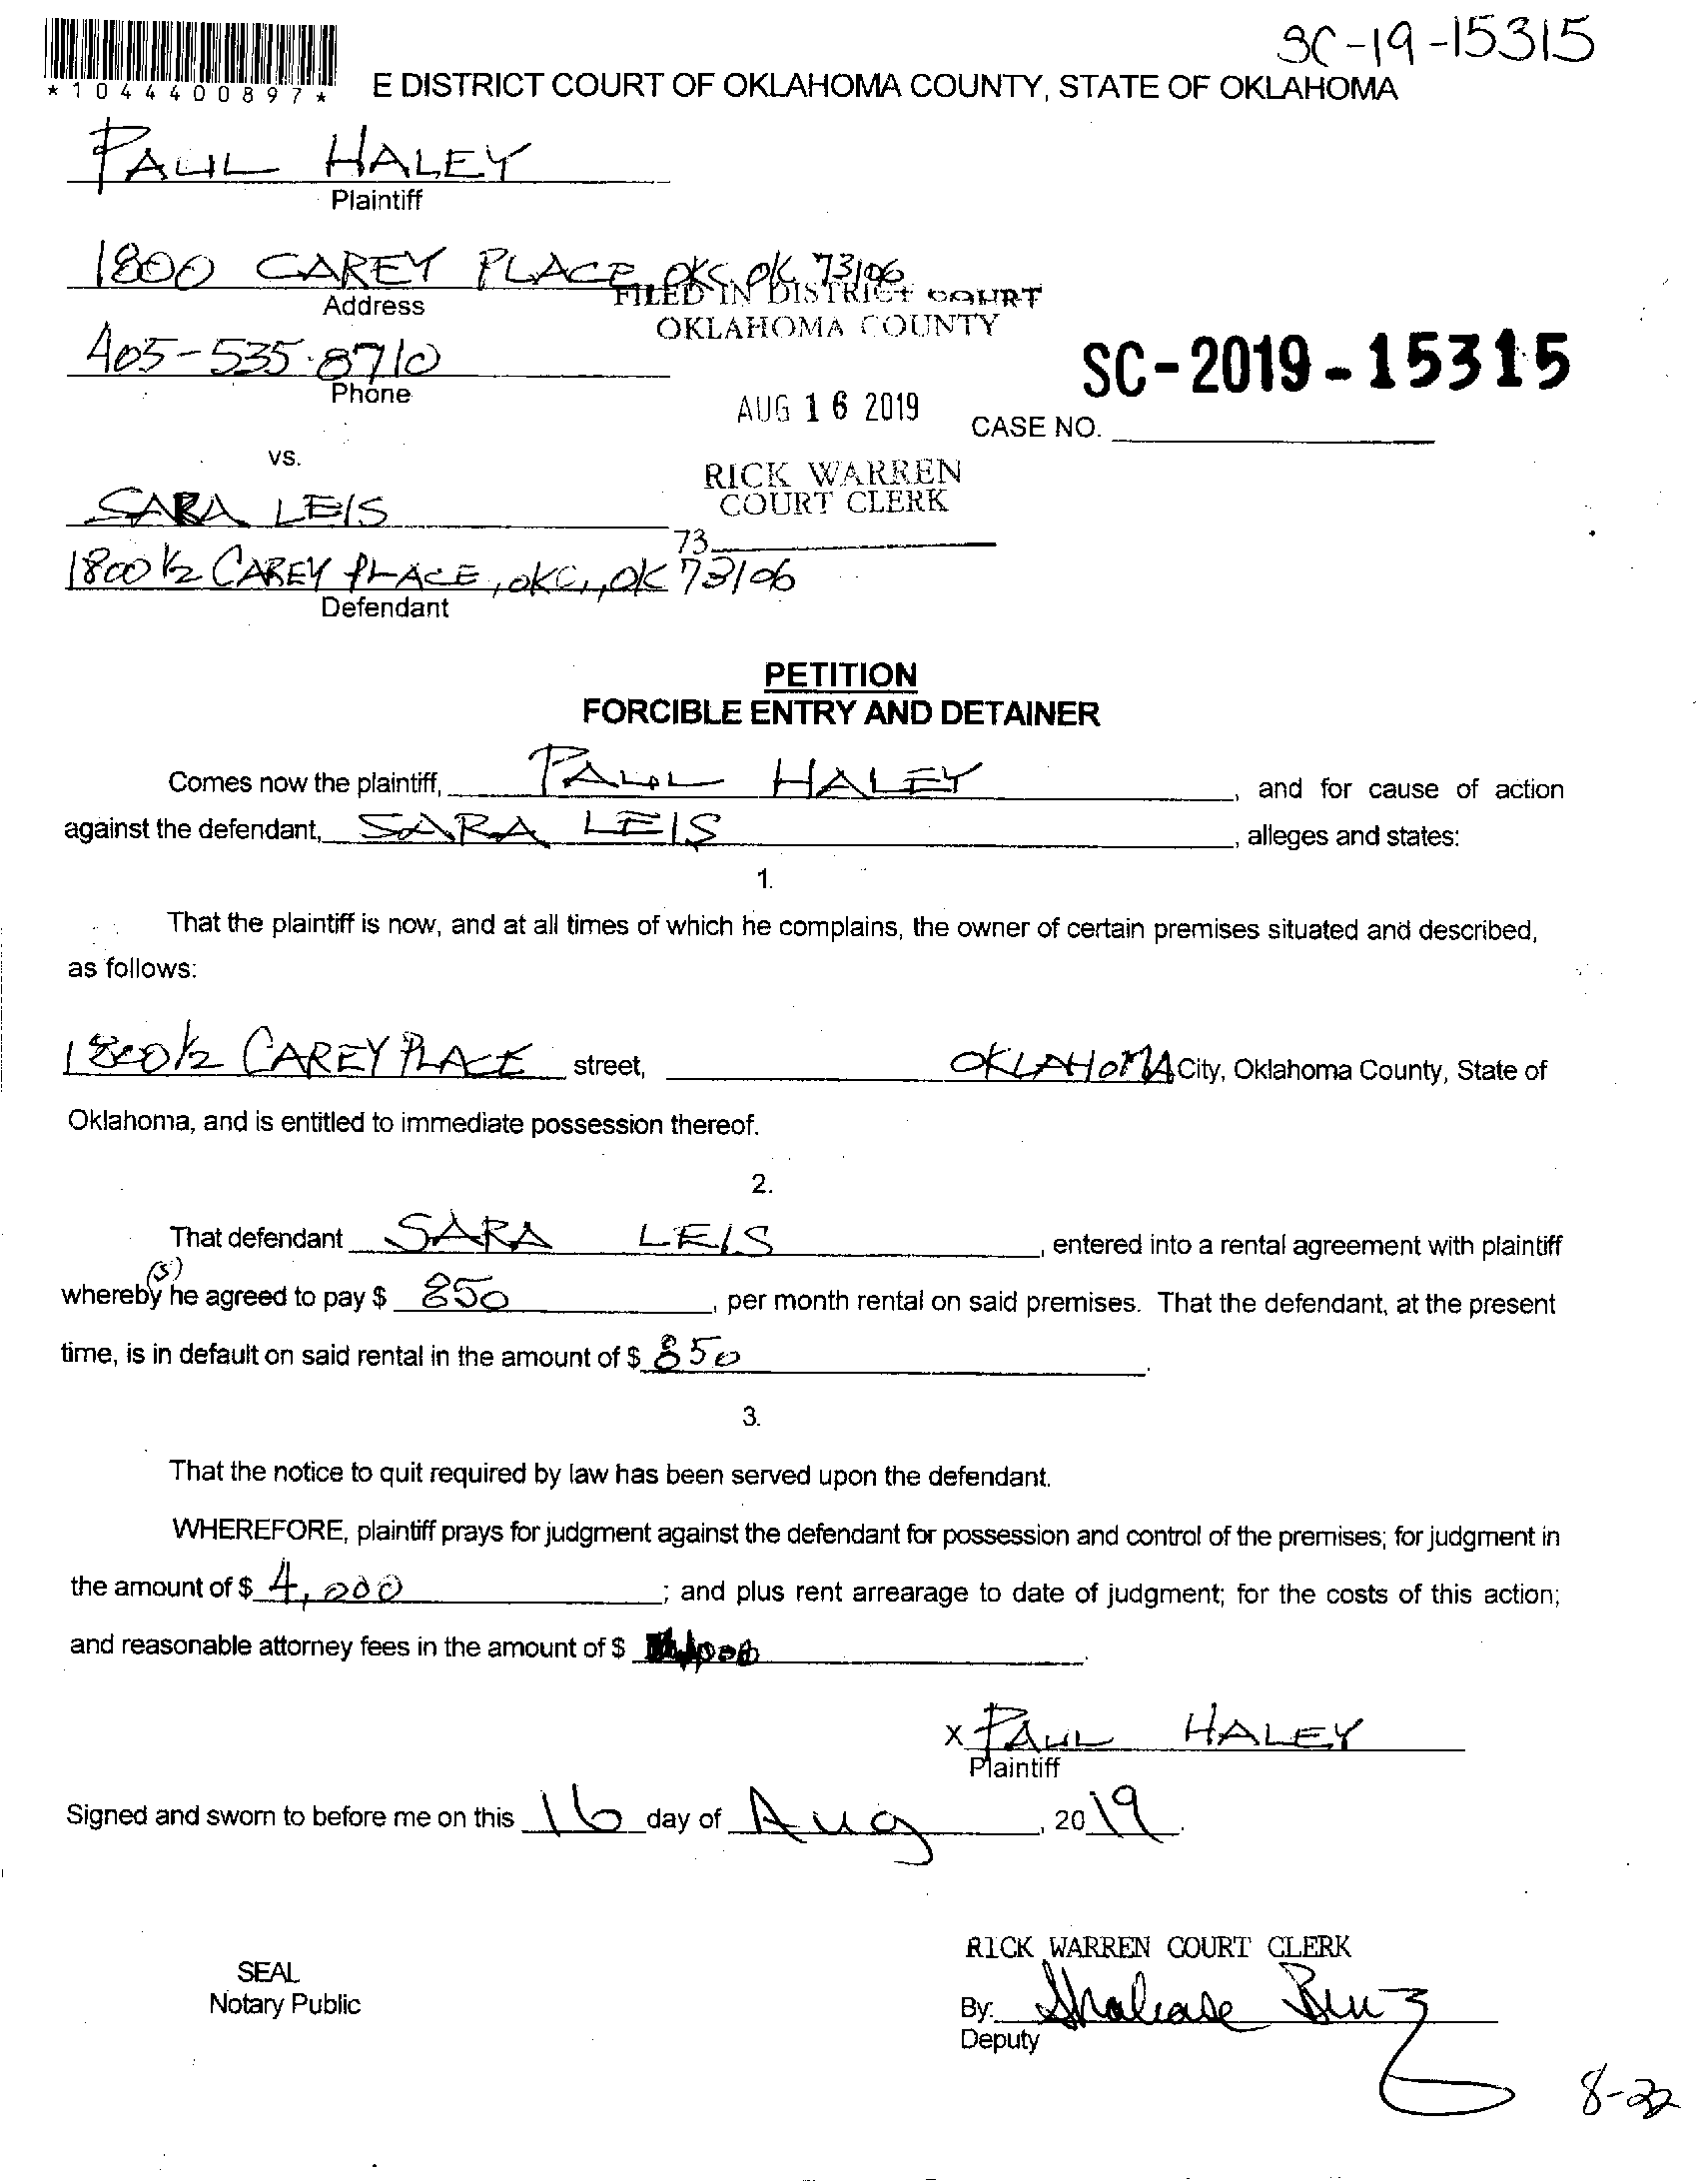 SC-19-15315
*1044400897*
E DISTRICT COURT OF OKLAHOMA COUNTY, STATE OF OKLAHOMA
PAUL HALEY
Plaintiff
1800 CAREY PLACE, OKC, OK 73106
Address
FILED IN DISTRICT COURT
OKLAHOMA COUNTY
405-535-8710
Phone
SC-2019-15315
AUG 16 2019
CASE NO.
vs.
RICK WARREN
COURT CLERK
SARA LEIS
73
1800 1/2 CAREY PLACE, OKC, OK 73106
Defendant
PETITION
FORCIBLE ENTRY AND DETAINER
Comes now the plaintiff, PAUL HALEY, and for cause of action
against the defendant, SARA LEIS, alleges and states:
1.
That the plaintiff is now, and at all times of which he complains, the owner of certain premises situated and described,
as follows:
1800 1/2 CAREY PLACE street, OKLAHOMA City, Oklahoma County, State of
Oklahoma, and is entitled to immediate possession thereof.
2.
That defendant SARA LEIS, entered into a rental agreement with plaintiff
whereby (s) he agreed to pay $ 850, per month rental on said premises. That the defendant, at the present
time, is in default on said rental in the amount of $ 850.
3.
That the notice to quit required by law has been served upon the defendant.
WHEREFORE, plaintiff prays for judgment against the defendant for possession and control of the premises; for judgment in
the amount of $ 4,000; and plus rent arrearage to date of judgment; for the costs of this action;
and reasonable attorney fees in the amount of $
X PAUL HALEY
Plaintiff
Signed and sworn to before me on this 16 day of Aug, 2019.
RICK WARREN COURT CLERK
SEAL
Notary Public
By:
Deputy
8-22